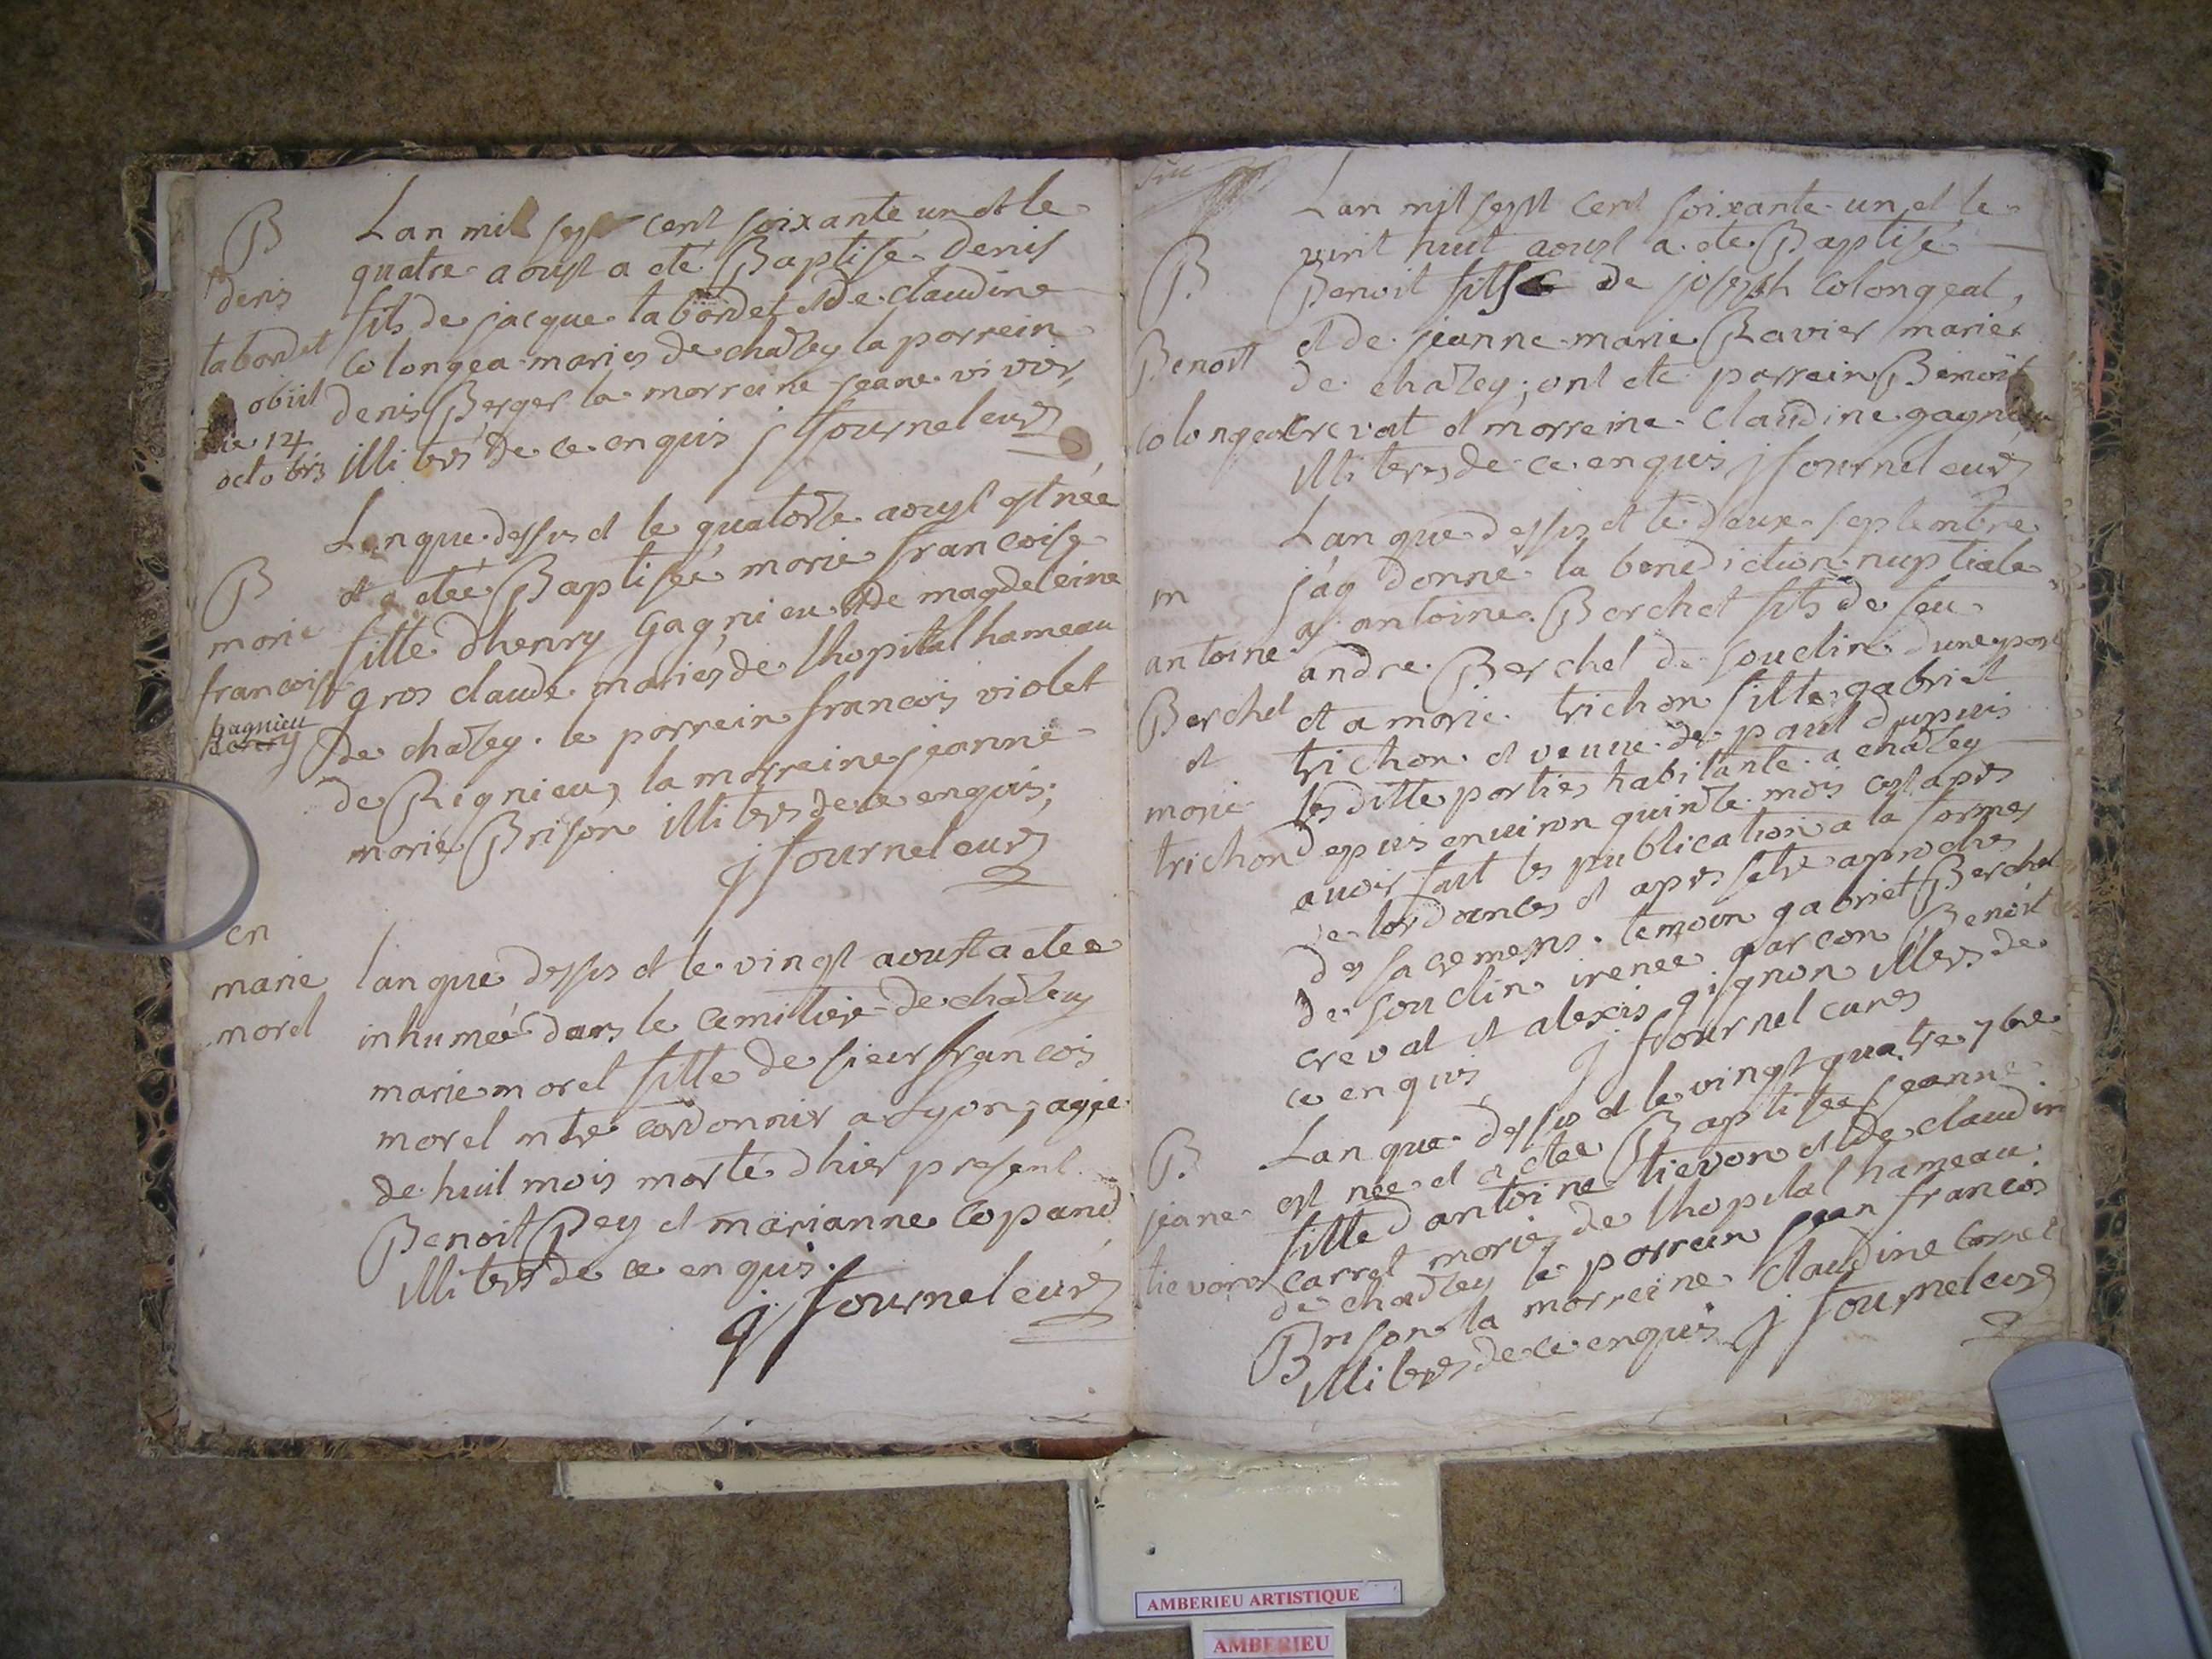 B
denis
tabordet
obiit
die 14
octobris
Lan mil sept cent soixante un et le
quatre aoust a été Baptisé denis
fils de jacque tabordet et de claudine
Colongea mariés de chazey la parrein
denis Berger la marreine jeane vivier,
illiterés de ce enquis j fournel curé
B
marie
francoise
gagnieu
henry
Lan que dessus et le quatorze aoust est née
et a etée Baptisée marie francoise
fille dhenry Gagnieu et de magdeleine
gros claude mariés de lhopital hameau
de chazey. le parrein francois violet
de Rignieu, la marreine jeanne
marie Brison illiterés de ce enquis;
j fournel curé
en
marie
morel
lan que dessus et le vingt aoust a etee
inhumée dans le cemitiere de chazey
marie morel fille de sieur francois
morel mtre cordonnier a Lyon, agée
de huit mois morte dhier present
Benoit Pey et marianne Copand
illiterés de ce enquis.
j fournel curé
B
Benoit
Colongeat
Lan mil sept cent soixante un et le
vint huit aoust a ete Baptisé
Benoit fils de joseph Colongeat,
et de jeanne marie Ravier mariés
de chazey; ont ete parrein Benoit
crevat et marreine Claudine gagnieu
illiterés de ce enquis j fournel curé
m
antoine
Berchet
et
marie
trichon
Lan que dessus et le deux septembre
j'ay donné la benediction nuptiale
a antoine Berchet fils de feu
andre Berchet de souclin dune part
et a marie trichon fille gabriel
trichon et veuve de paul dupuis
les ditte parties habitante a chazey
depuis environ quinze mois cest apres
avoir fait les publication a la formes
de lordances et apres setre aproches
des sacremens. temoin gabriel Berchet
de souclin irenee garcon Benoit
crevat et alexis gignon illiterés de
ce enquis j fournel curé
B.
jeane
tievon
Lan que dessus et le vingt quatre 7bre
est née et a etee Baptisée jeanne
fille d antoine tievon et de claudine
carret mariés de lhopital hameau
de chazey le parrein jean francois
Brison la marreine claudine Carret
illiterés de ce enquis j fournel curé
AMBERIEU ARTISTIQUE
AMBERIEU